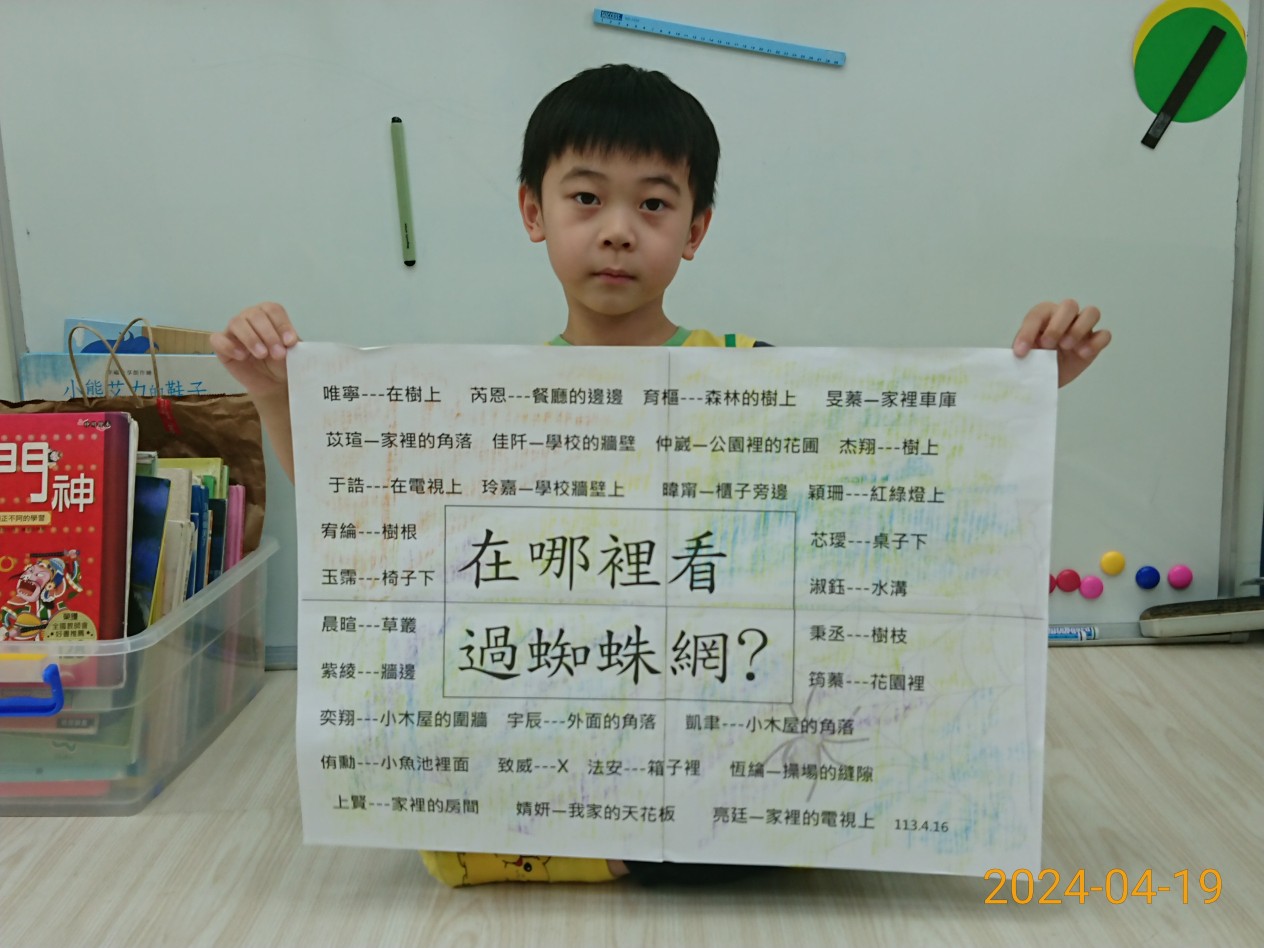 小熊艾力的鞋子
門神
正不同的學習
榮獲
全國教師會
好書推薦
唯寧---在樹上 芮恩---餐廳的邊邊 育樞---森林的樹上 旻蓁—家裡車庫
苡瑄—家裡的角落 佳阡—學校的牆壁 仲崴—公園裡的花圃 杰翔---樹上
于誥---在電視上 玲嘉—學校牆壁上 暐甯—櫃子旁邊 穎珊---紅綠燈上
宥綸---樹根 芯璦---桌子下
玉霈---椅子下 淑鈺---水溝
在哪裡看
過蜘蛛網?
晨暄---草叢 秉丞---樹枝
紫綾---牆邊 筠蓁---花園裡
奕翔---小木屋的圍牆 宇辰---外面的角落 凱聿---小木屋的角落
侑勳---小魚池裡面 致威---X 法安---箱子裡 恆綸—操場的縫隙
上賢---家裡的房間 婧妍—我家的天花板 亮廷—家裡的電視上 113.4.16
2024-04-19